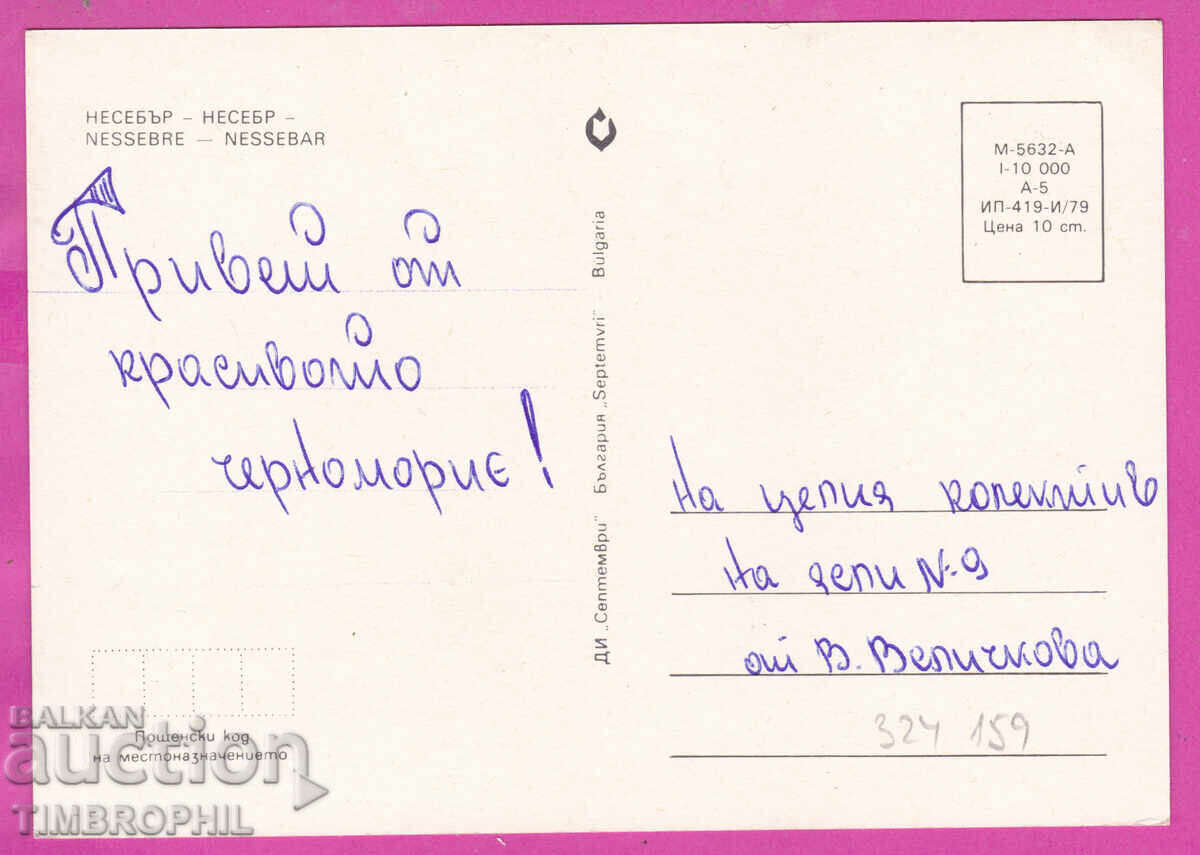 НЕСЕБЪР – НЕСЕБР –
NESSEBRE — NESSEBAR
Привет от
красивото
черноморие!
ДИ „Септември" България „Septemvri" Bulgaria
М-5632-А
I-10 000
А-5
ИП-419-И/79
Цена 10 ст.
На целия колектив
на депи №9
от В. Величкова
324 159
Пощенски код
на местоназначението
BALKAN
auction
TIMBROPHIL